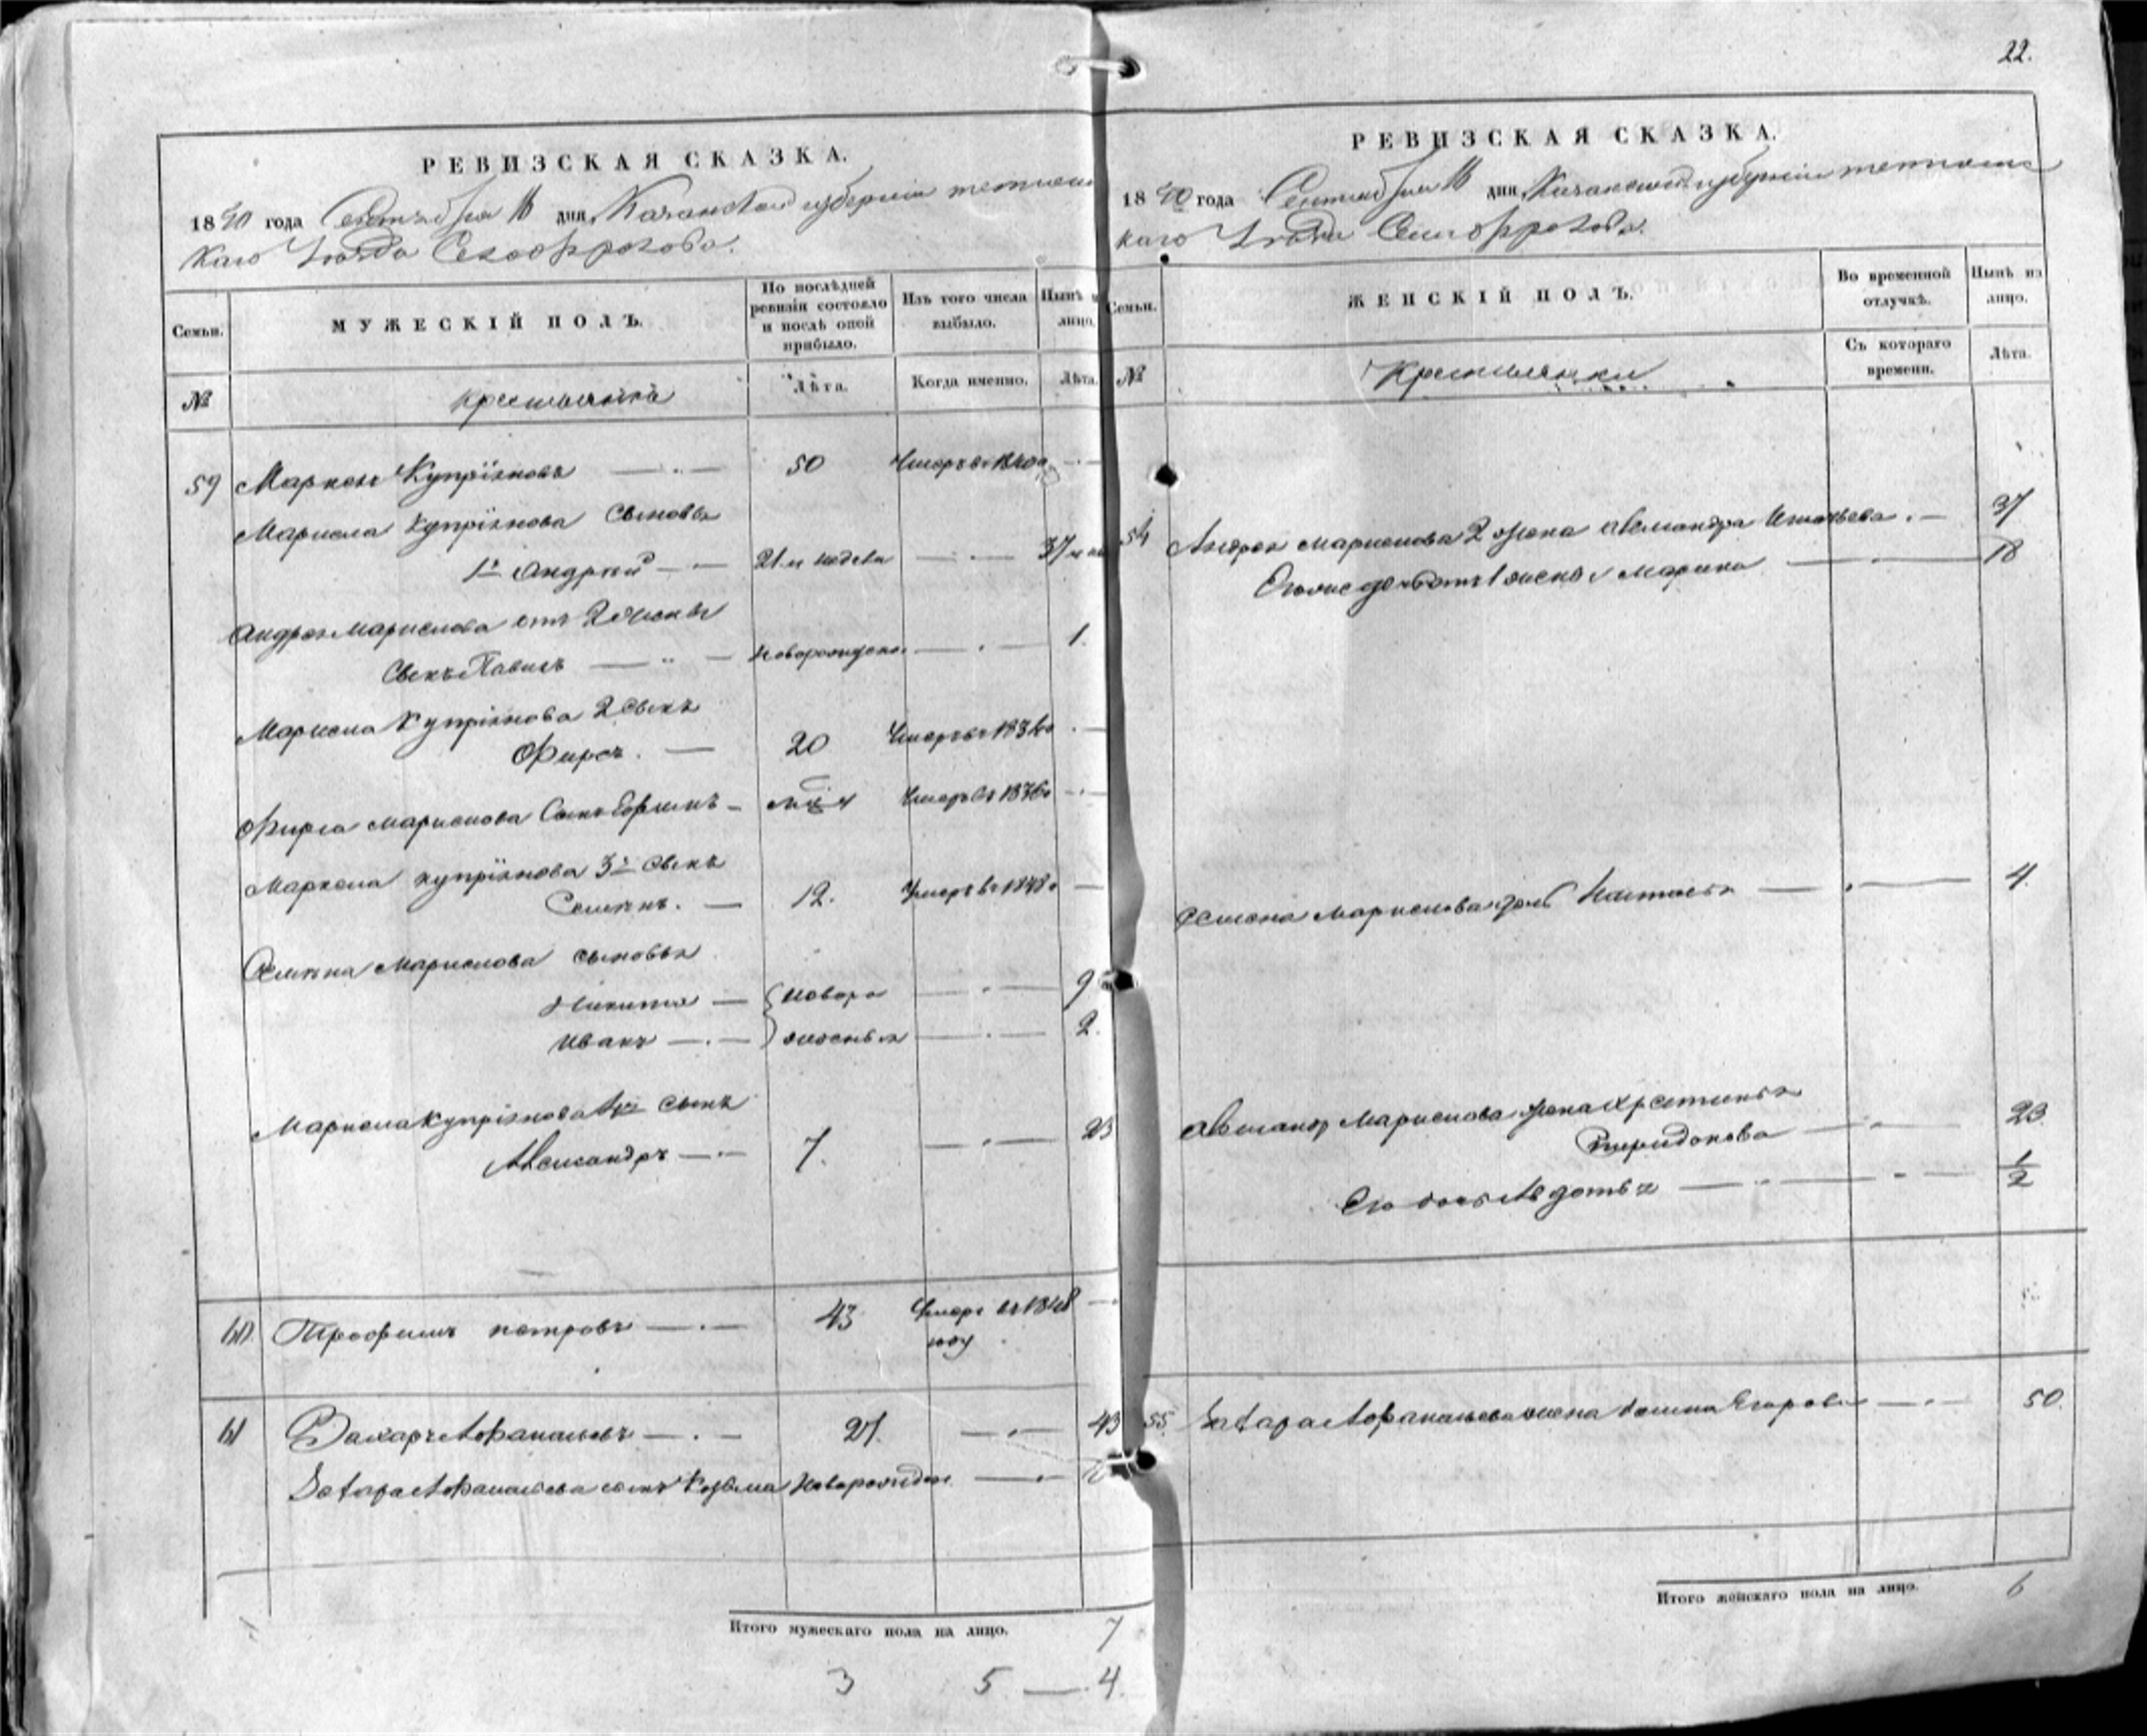 22.
РЕВИЗСКАЯ СКАЗКА.
1850 года Сентября 16 дня Казанской губернии тетюш
каго Уѣзда Села
Семьи.
МУЖЕСКІЙ ПОЛЪ.
По послѣдней ревизіи состояло и послѣ оной прибыло.
Изъ того числа выбыло.
Нынѣ на лицо.
№
крестьянъ
Лѣта.
Когда именно.
Лѣта.
59 Маркелъ Купріяновъ 50 Умеръ въ
Маркела Купріянова сыновья
1й Андрей 21 и недели 37
Андрея Маркелова отъ 2 жены
сынъ Павелъ новорожден. 1.
Маркела Купріянова 2 сынъ
Фирсъ. 20 Умеръ въ
Фирса Маркелова сынъ Умеръ въ 1836
Маркела купріянова 3й сынъ
Семенъ. 12. Умеръ въ 1848
Семена Маркелова сыновья
Никита новоро 9
Иванъ жденыя 2.
Маркела Купріянова 4й сынъ
Александръ 7. 23
60 Трофимъ петровъ 43 Умеръ въ 1848
году
61 Захаръ Афанасьевъ 27. 43
Захара Афанасьева сынъ Козьма Новорожден
Итого мужескаго пола на лицо. 7
3 5 — 4.
РЕВИЗСКАЯ СКАЗКА.
1850 года Сентября 16 дня Казанской губерніи тетюшс
каго Уѣзда Села
Семьи.
ЖЕНСКІЙ ПОЛЪ.
Во временной отлучкѣ.
Нынѣ на лицо.
№
Крестьянки
Съ котораго времени.
Лѣта.
54 Андрея Маркелова 2 жена Александра 37
Его же дочь отъ 1 жены Марина 18
Семена Маркелова дочь Настасья 4.
Александр Маркелова жена
Спиридонова 23
Его дочь Авдотья 1/2
55. Захара Афанасьева жена Егорова 50.
Итого женскаго пола на лицо. 6